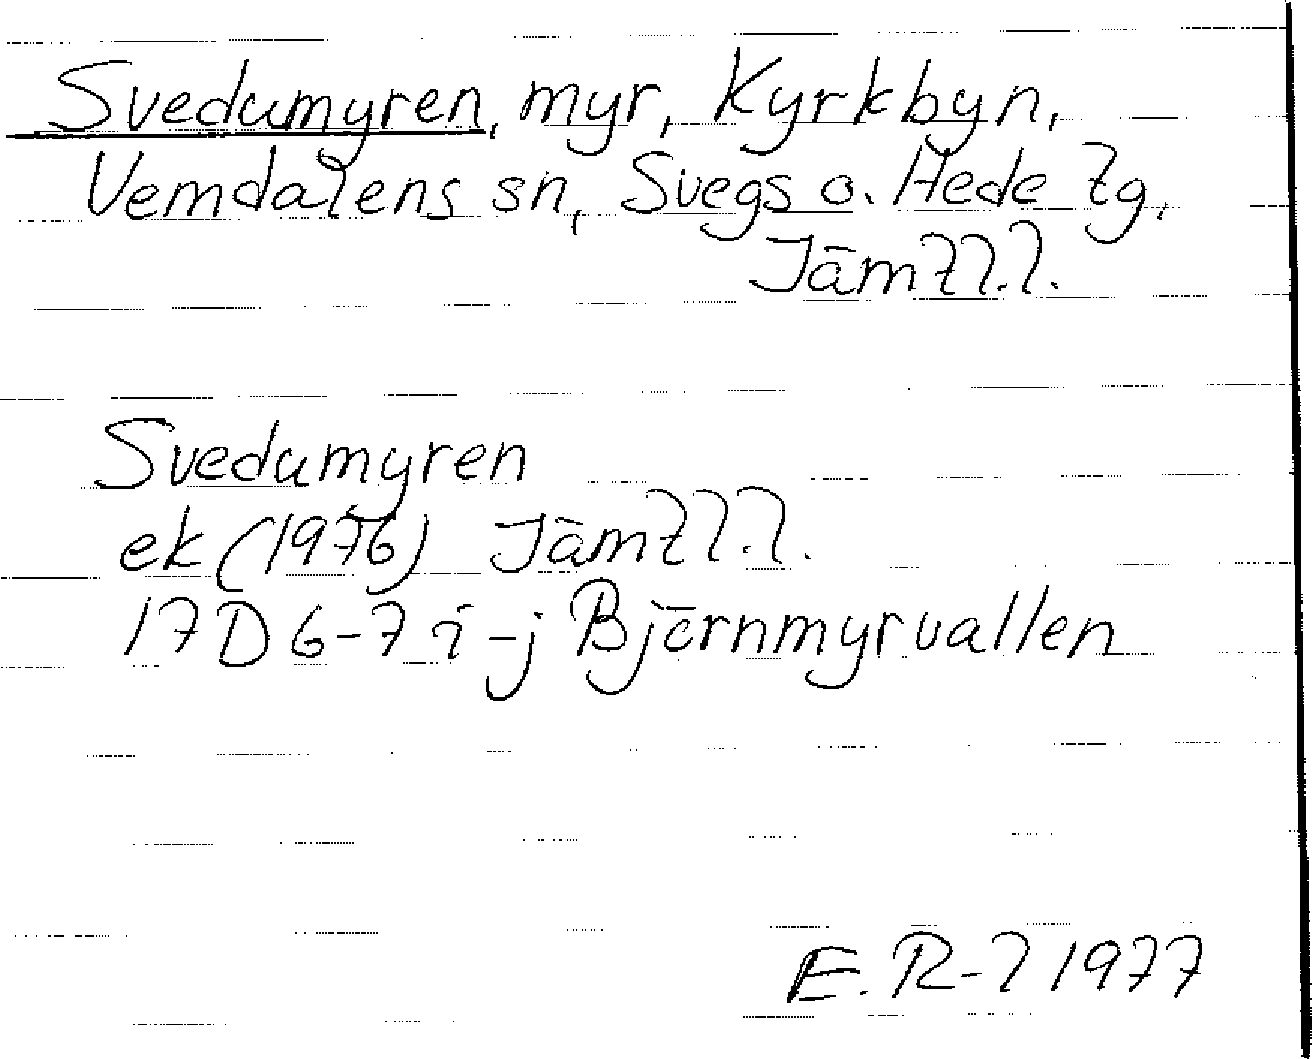 Svedamyren, myr, Kyrkbyn,
Vemdalens sn, Svegs o. Hede tg,
Jämtl.l.
Svedamyren
ek (1976) Jämtl.l.
17D 6-7 i-j Björnmyrvallen
E. R-l 1977